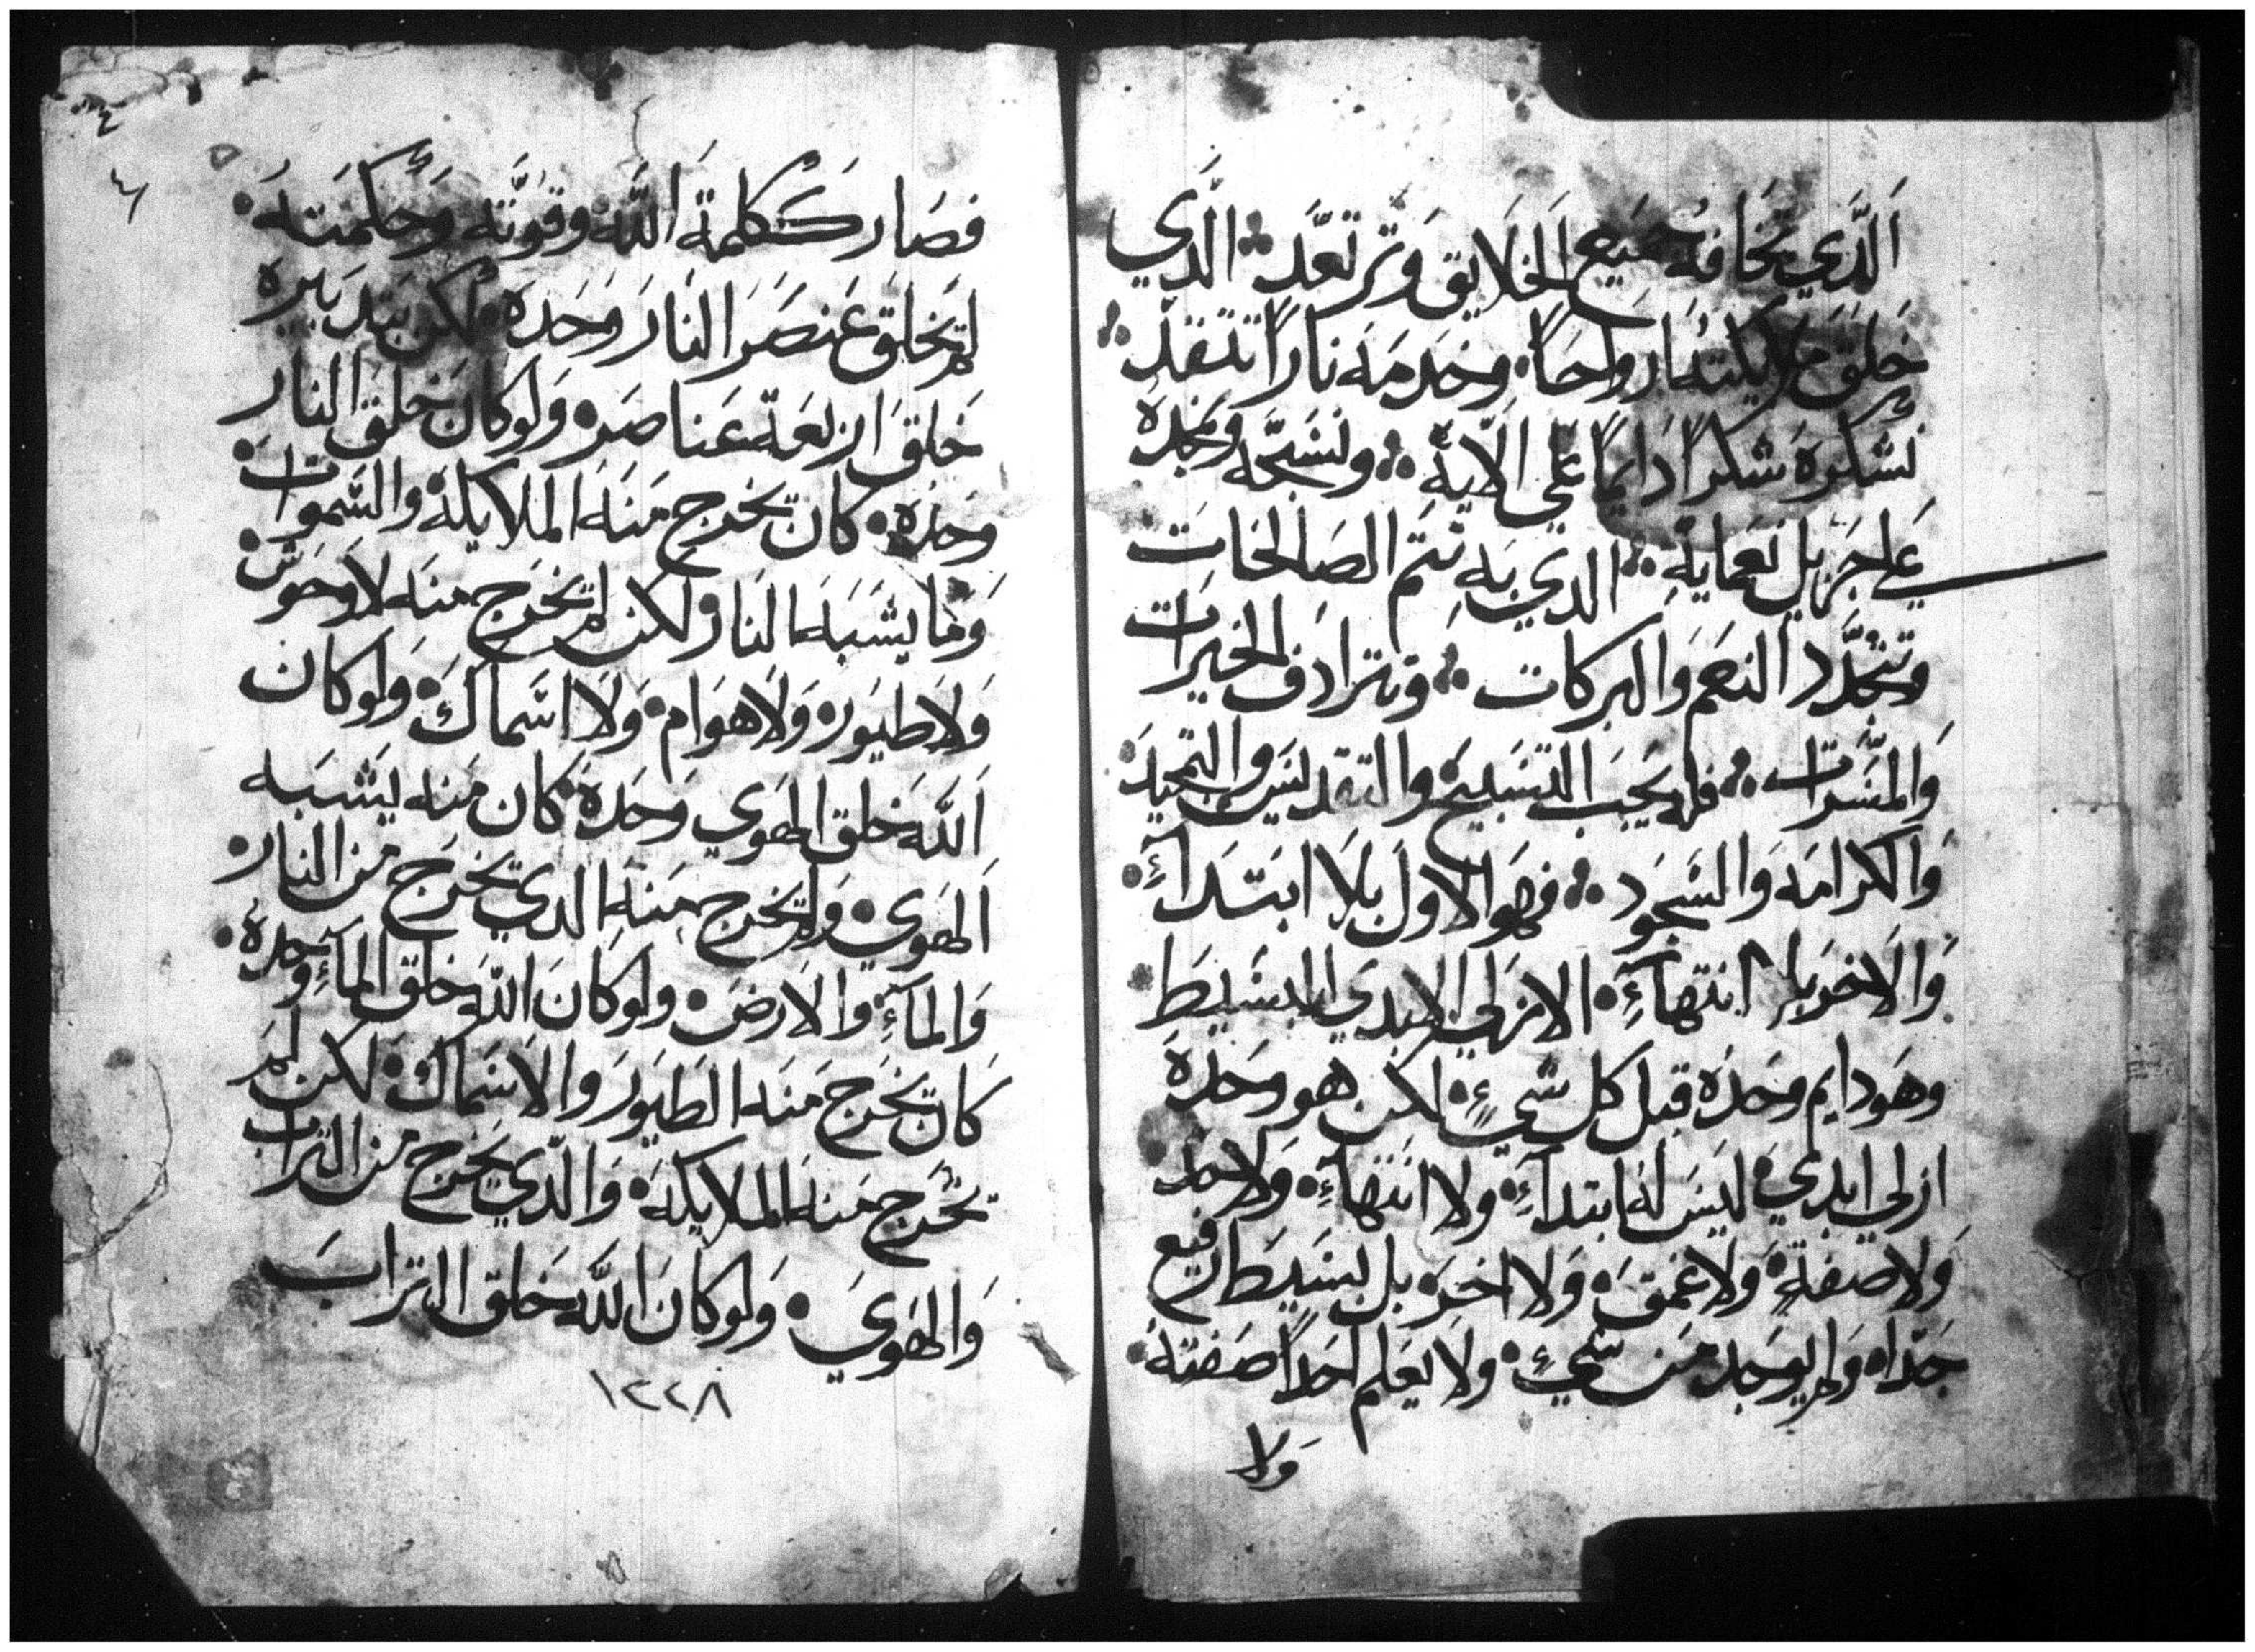 الَّذَي تخَافهُ جمَيَع الخلَايق وَترتعَّد الَّذَي
خَلقَ مَلايكتهُ ارواحَاً وخدمَه ناراً تتقدَ
نشكرهَ شكراً دَايماً عَلي الَايهَ ونسَبّحَه ونمجدهَ
عَلي جَزيل نعَمايهَ الدي بَهِ تتَم الصَالحَات
وتتجدَّد النعَم وَالبركات وتترادَف الخيَرات
وَالمسَّرات فله يَجَب التسَبيح والتقديسَ والتمجيدَ
وَالكرامَه وَالسَّجَود فهَو الاول بلَا ابتَدآءَ
وَالاخرَ بلا انتهآءَ الازلي الابدي البسَيطَ
وهَو دايم وحَدَه قبل كل شَيءٍ لكن هو وحَدهَ
ازلي ابديَ ليسَ لهُ ابتدآءَ ولا انتهآءَ وَلا حد
وَلا صفةٍ وَلا عَمقَ وَلا اخرَ بل بسَيَطَ رفيع
جَداً وَلم يوجَد مَن شَيءٍ ولا يعَلم احَداً صَفتهَ
وَلا
٤
فصَار كَكلمة اَللَّه وقوَتَّه وَحُكمَتهَ
لم تخلقَ عَنصَرَ النَارَ وَحَدهَ لكن بتدبَيرهَ
خَلقَ اربعَة عَناصَر وَلوكانَ خَلقَ النار
وَحَدَهَ كان يخرج مَنهَ الملايكة والسَّموات
وَما يشَبَهَ النار ولكن لم يخَرَج منهَ لا وَحَوش
وَلَا طيَور وَلَا هوَام وَلَا اسَّماكَ وَلوكان
اَللَّه خَلق الهَوي وَحَدهَ كان مَنه يَشبَه
اَلهَوي وَلم يخرج مَنهَ الدي يخَرَج مَن النار
وَالمآءَ والارضَ ولوكانَ اللَّه خلقَ المآءَ وحدهَ
كَان يخَرَج مَنهَ الطيَورَ وَالاسَماكَ لكن لم
تخَرج مَنهَ الملايكهَ وَالّدَي يخَرج مَن التراب
وَالهَويَ وَلوكَانَ اللَّه خَلق الترابَ
١٢٢٨